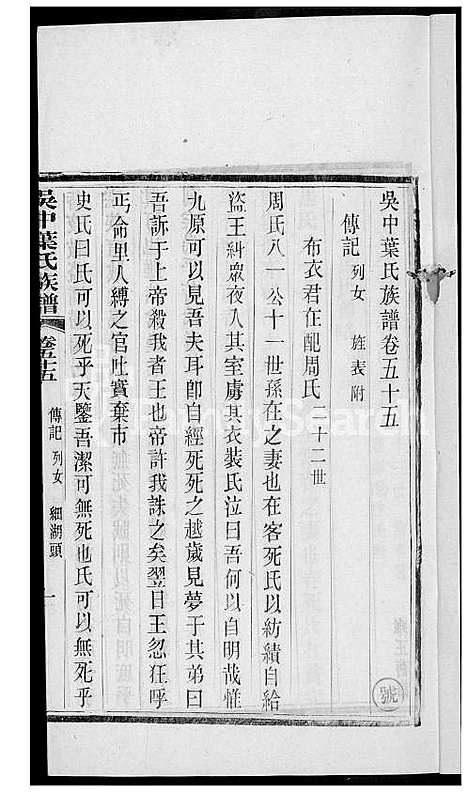 吳中葉氏族譜卷五十五
傳記 列女 旌表附
布衣君在配周氏 二十二世
周氏八一公十一世孫在之妻也在客死氏以紡績自給
盜王糾眾夜入其室虜其衣裝氏泣曰吾何以自明哉惟
九原可以見吾夫耳卽自經死死之越歲見夢于其弟曰
吾訴于上帝殺我者王也帝許我誅之矣翌日王忽狂呼
丐命里人縛之官吐實棄市
史氏曰氏可以死乎天鑒吾潔可無死也氏可以無死乎
吳中葉氏族譜 卷五十五 傳記 列女 細湖頭 一
號